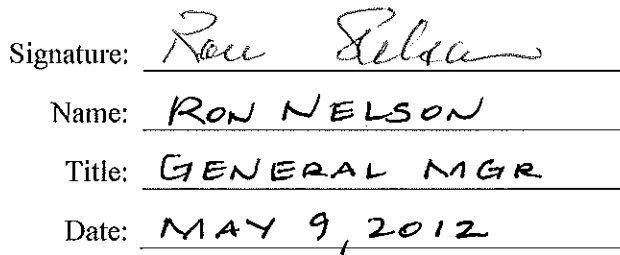 Signature: Ron Nelson
Name: RON NELSON
Title: GENERAL MGR
Date: MAY 9, 2012